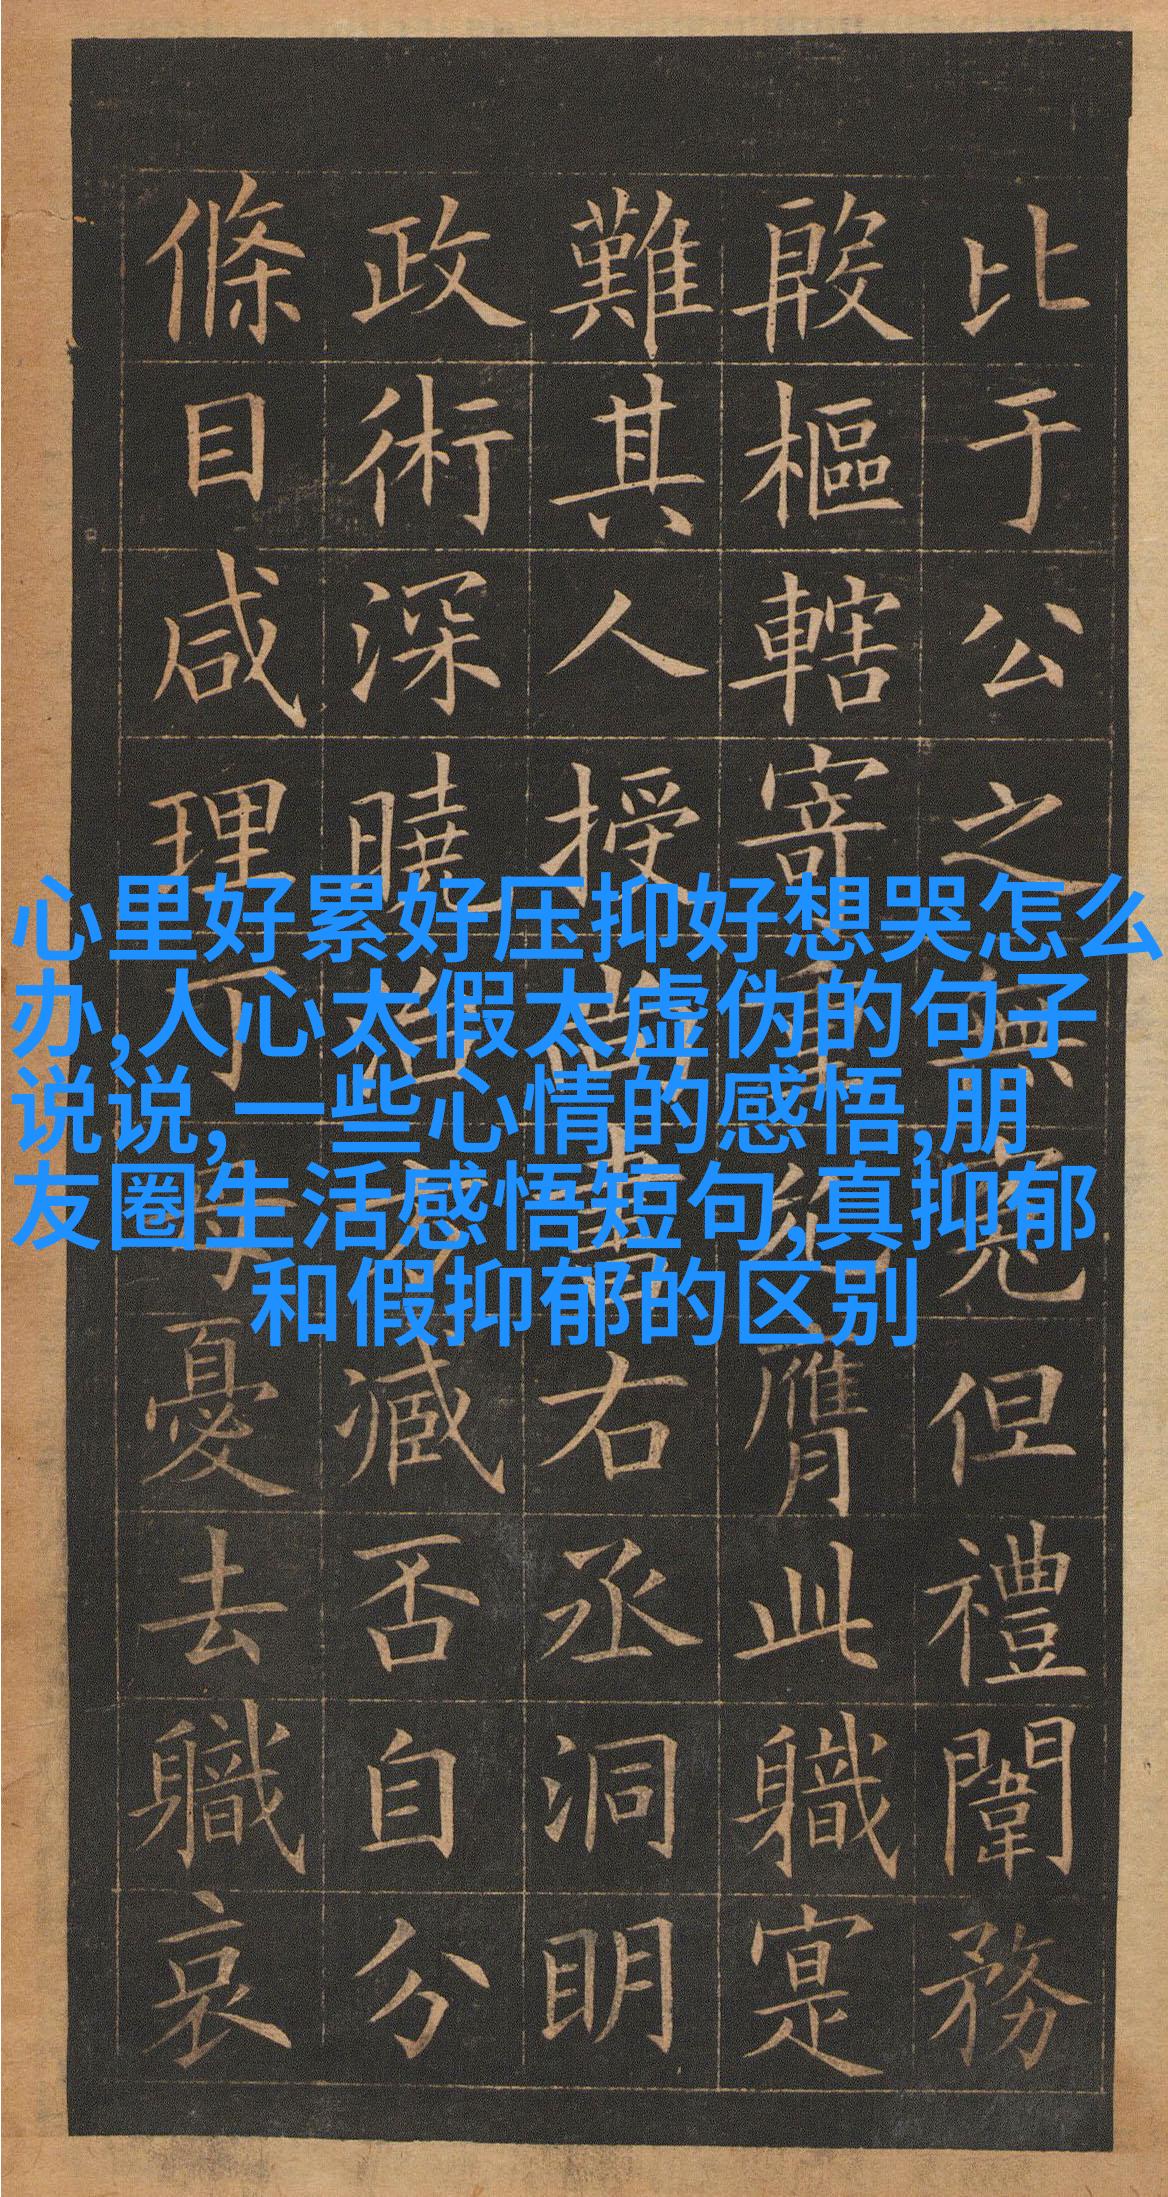 比于公之無寃但禮闈務
殷樞轄寄重膺此職寔
難其人授尚書右丞洞明
政術深曉治方臧否自分
條目咸理丁憂去職哀
心里好累好压抑好想哭怎么
办,人心太假太虚伪的句子
说说,一些心情的感悟,朋
友圈生活感悟短句,真抑郁
和假抑郁的区别